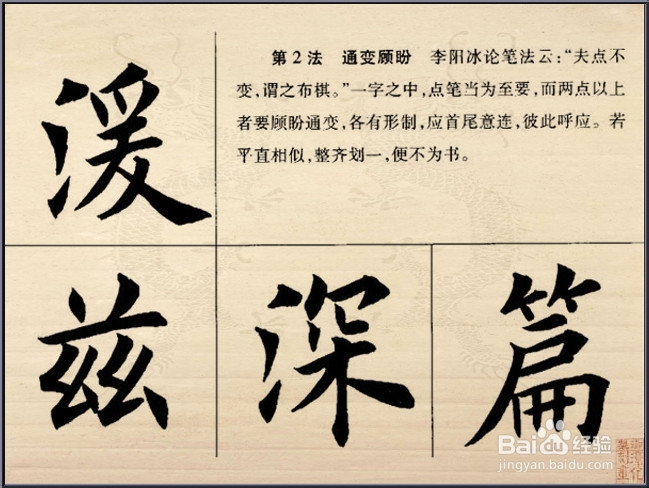 湲
第2法 通变顾盼 李阳冰论笔法云:“夫点不
变,谓之布棋。”一字之中,点笔当为至要,而两点以上
者要顾盼通变,各有形制,应首尾意连,彼此呼应。若
平直相似,整齐划一,便不为书。
兹 深 篇
Baidu经验
jingyan.baidu.com